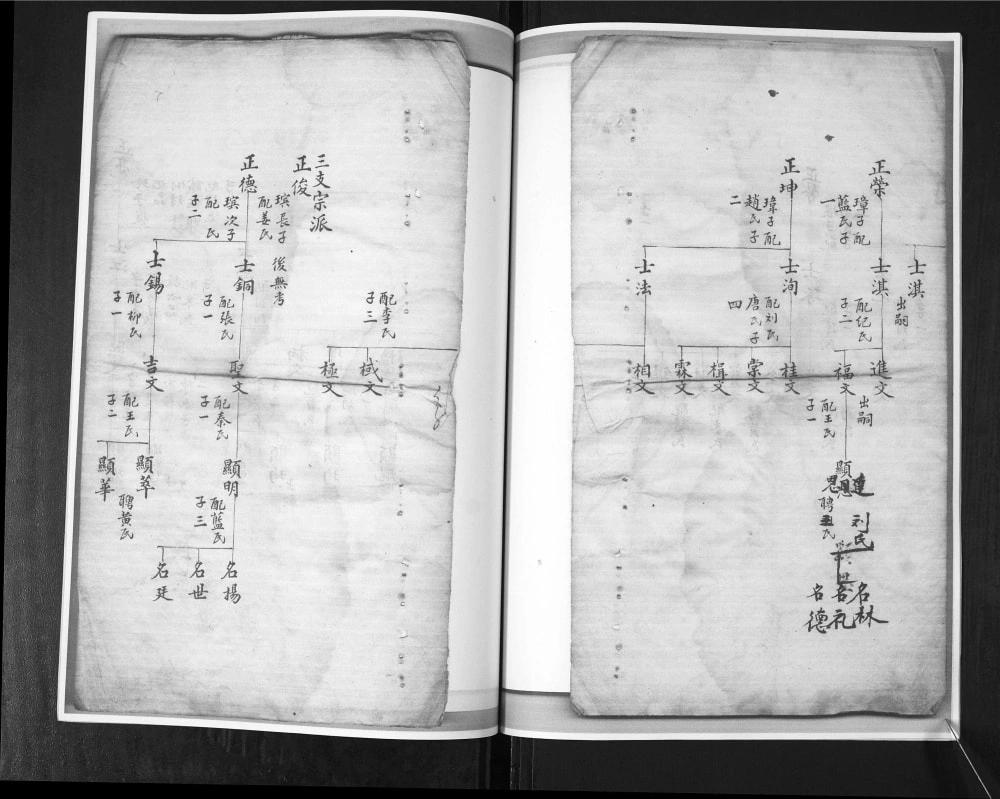 士淇
出嗣
正榮
璋子配
藍氏子
一
士淇
配紀氏
子二
進文
出嗣
福文
配王氏
子一
顯
達
思
聘 氏
刘氏
名林
名礼
名德
正坤
璋子配
趙氏子
二
士洵
配刘氏
唐氏子
四
桂文
棠文
楫文
霖文
士法
相文
配李氏
子三
棫文
極文
三支宗派
正俊
璸長子
配姜氏
後無考
正德
璸次子
配 氏
子二
士銅
配張氏
子一
聖文
配秦氏
子一
顯明
配藍氏
子三
名揚
名世
名廷
士錫
配柳氏
子一
吉文
配王氏
子二
顯萃
聘黄氏
顯華